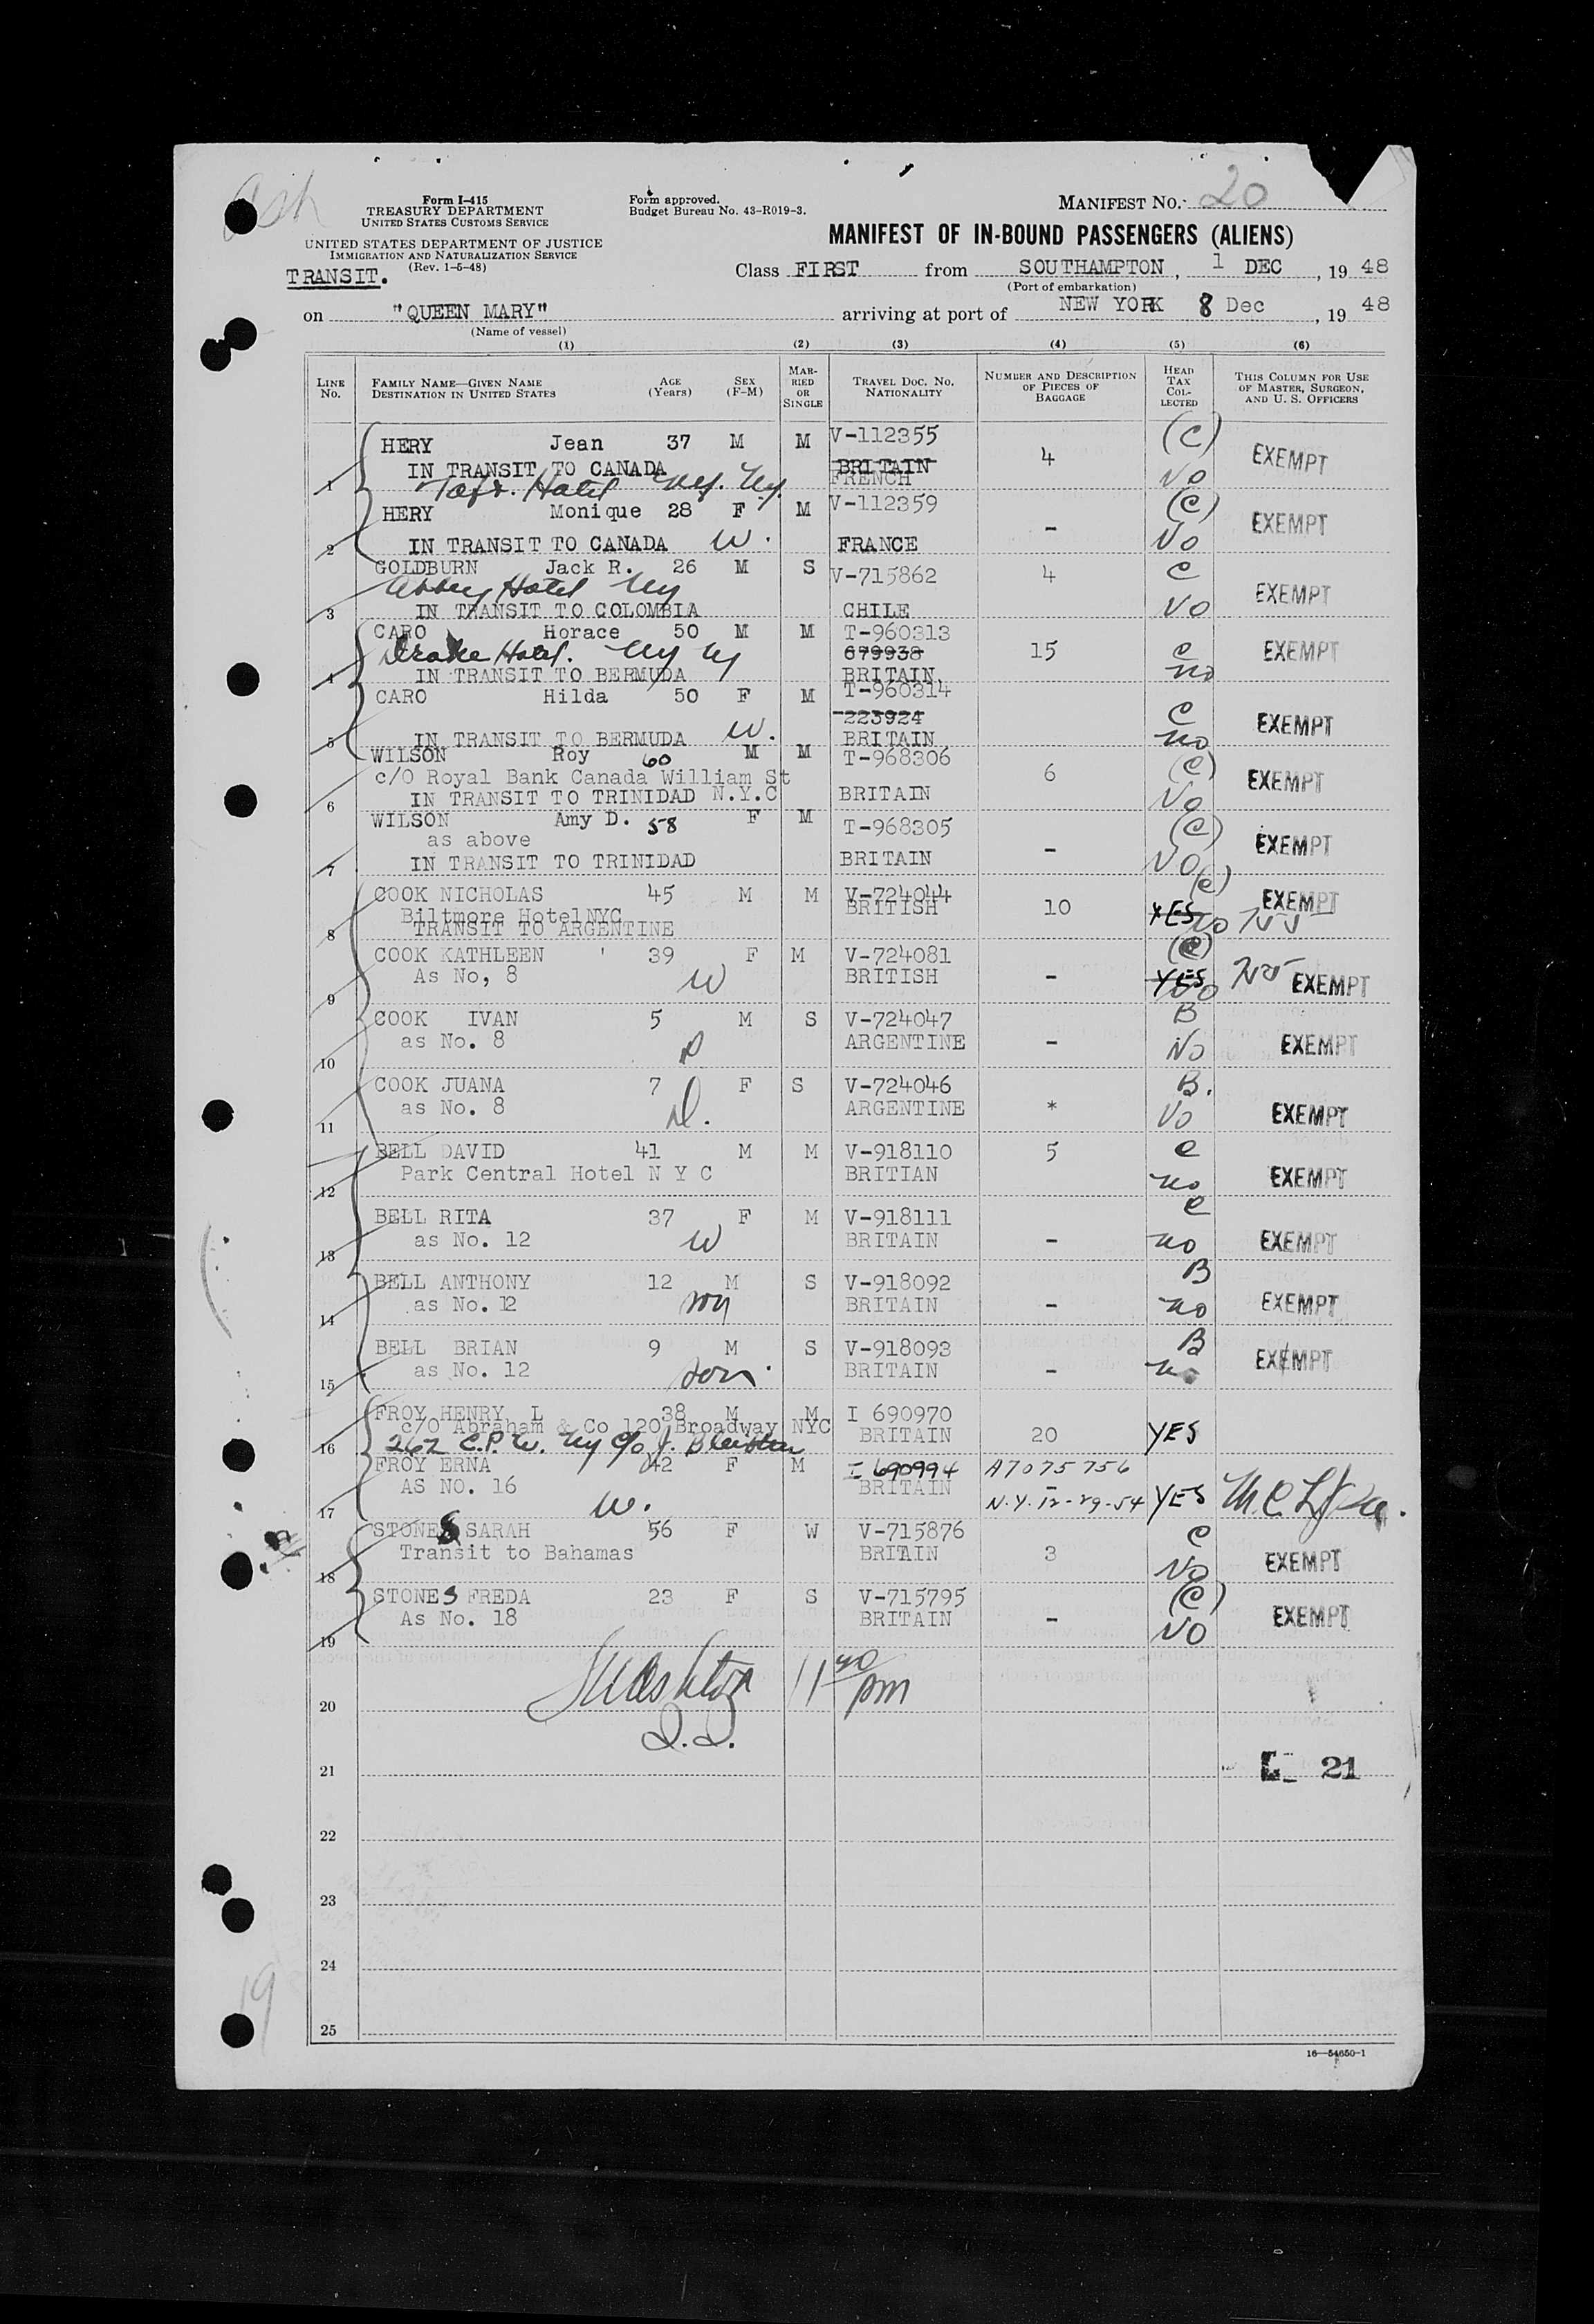 Form I-415
TREASURY DEPARTMENT
UNITED STATES CUSTOMS SERVICE
UNITED STATES DEPARTMENT OF JUSTICE
IMMIGRATION AND NATURALIZATION SERVICE
(Rev. 1-5-48)
TRANSIT.
Form approved.
Budget Bureau No. 43-R019-3.
MANIFEST No. 20
MANIFEST OF IN-BOUND PASSENGERS (ALIENS)
Class FIRST from SOUTHAMPTON, 1 DEC, 19 48
(Port of embarkation)
on "QUEEN MARY" arriving at port of NEW YORK 8 Dec, 19 48
(Name of vessel)
(1) (2) (3) (4) (5) (6)
LINE No. FAMILY NAME—GIVEN NAME DESTINATION IN UNITED STATES AGE (Years) SEX (F-M) MARRIED OR SINGLE TRAVEL DOC. NO. NATIONALITY NUMBER AND DESCRIPTION OF PIECES OF BAGGAGE HEAD TAX COLLECTED THIS COLUMN FOR USE OF MASTER, SURGEON, AND U. S. OFFICERS
HERY Jean 37 M M V-112355 4 (C) EXEMPT
IN TRANSIT TO CANADA BRITAIN
1 Hotel N.Y. N.Y. FRENCH NO
HERY Monique 28 F M V-112359 - (C) EXEMPT
2 IN TRANSIT TO CANADA W. FRANCE NO
GOLDBURN Jack R. 26 M S V-715862 4 C EXEMPT
Abbey Hotel NY
3 IN TRANSIT TO COLOMBIA CHILE NO
CARO Horace 50 M M T-960313
Drake Hotel. NY NY 679938 15 C EXEMPT
4 IN TRANSIT TO BERMUDA BRITAIN no
CARO Hilda 50 F M T-960314
W. 223924 C EXEMPT
5 IN TRANSIT TO BERMUDA BRITAIN no
WILSON Roy 60 M M T-968306 (C)
c/O Royal Bank Canada William St 6 EXEMPT
6 IN TRANSIT TO TRINIDAD N.Y.C BRITAIN NO
WILSON Amy D. 58 F M T-968305 (C)
as above - EXEMPT
7 IN TRANSIT TO TRINIDAD BRITAIN NO
COOK NICHOLAS 45 M M V-724044 (C) EXEMPT
Biltmore Hotel NYC BRITISH 10 YES NO
8 TRANSIT TO ARGENTINE
COOK KATHLEEN 39 F M V-724081 (C)
9 As No, 8 W BRITISH - YES NO EXEMPT
COOK IVAN 5 M S V-724047 B
10 as No. 8 ARGENTINE - NO EXEMPT
COOK JUANA 7 F S V-724046 B.
11 as No. 8 D. ARGENTINE * NO EXEMPT
BELL DAVID 41 M M V-918110 5 C
12 Park Central Hotel N Y C BRITIAN no EXEMPT
BELL RITA 37 F M V-918111 C
13 as No. 12 W BRITAIN - no EXEMPT
BELL ANTHONY 12 M S V-918092 B
14 as No. 12 son BRITAIN - no EXEMPT
BELL BRIAN 9 M S V-918093 B
15 as No. 12 son. BRITAIN - no EXEMPT
FROY HENRY L 38 M M I 690970
c/O Abraham & Co 120 Broadway NYC BRITAIN 20 YES
16 262 C.P.W. NY c/o J.
FROY ERNA 42 F M I 690994 A7075756
AS NO. 16 BRITAIN -
17 W. N.Y. 12-29-54 YES
STONES SARAH 56 F W V-715876 C
Transit to Bahamas BRITAIN 3 EXEMPT
18 NO
STONES FREDA 23 F S V-715795 (C)
As No. 18 BRITAIN - EXEMPT
19 NO
20 11 40 pm
21 21
22
23
24
25
16—54650-1
19